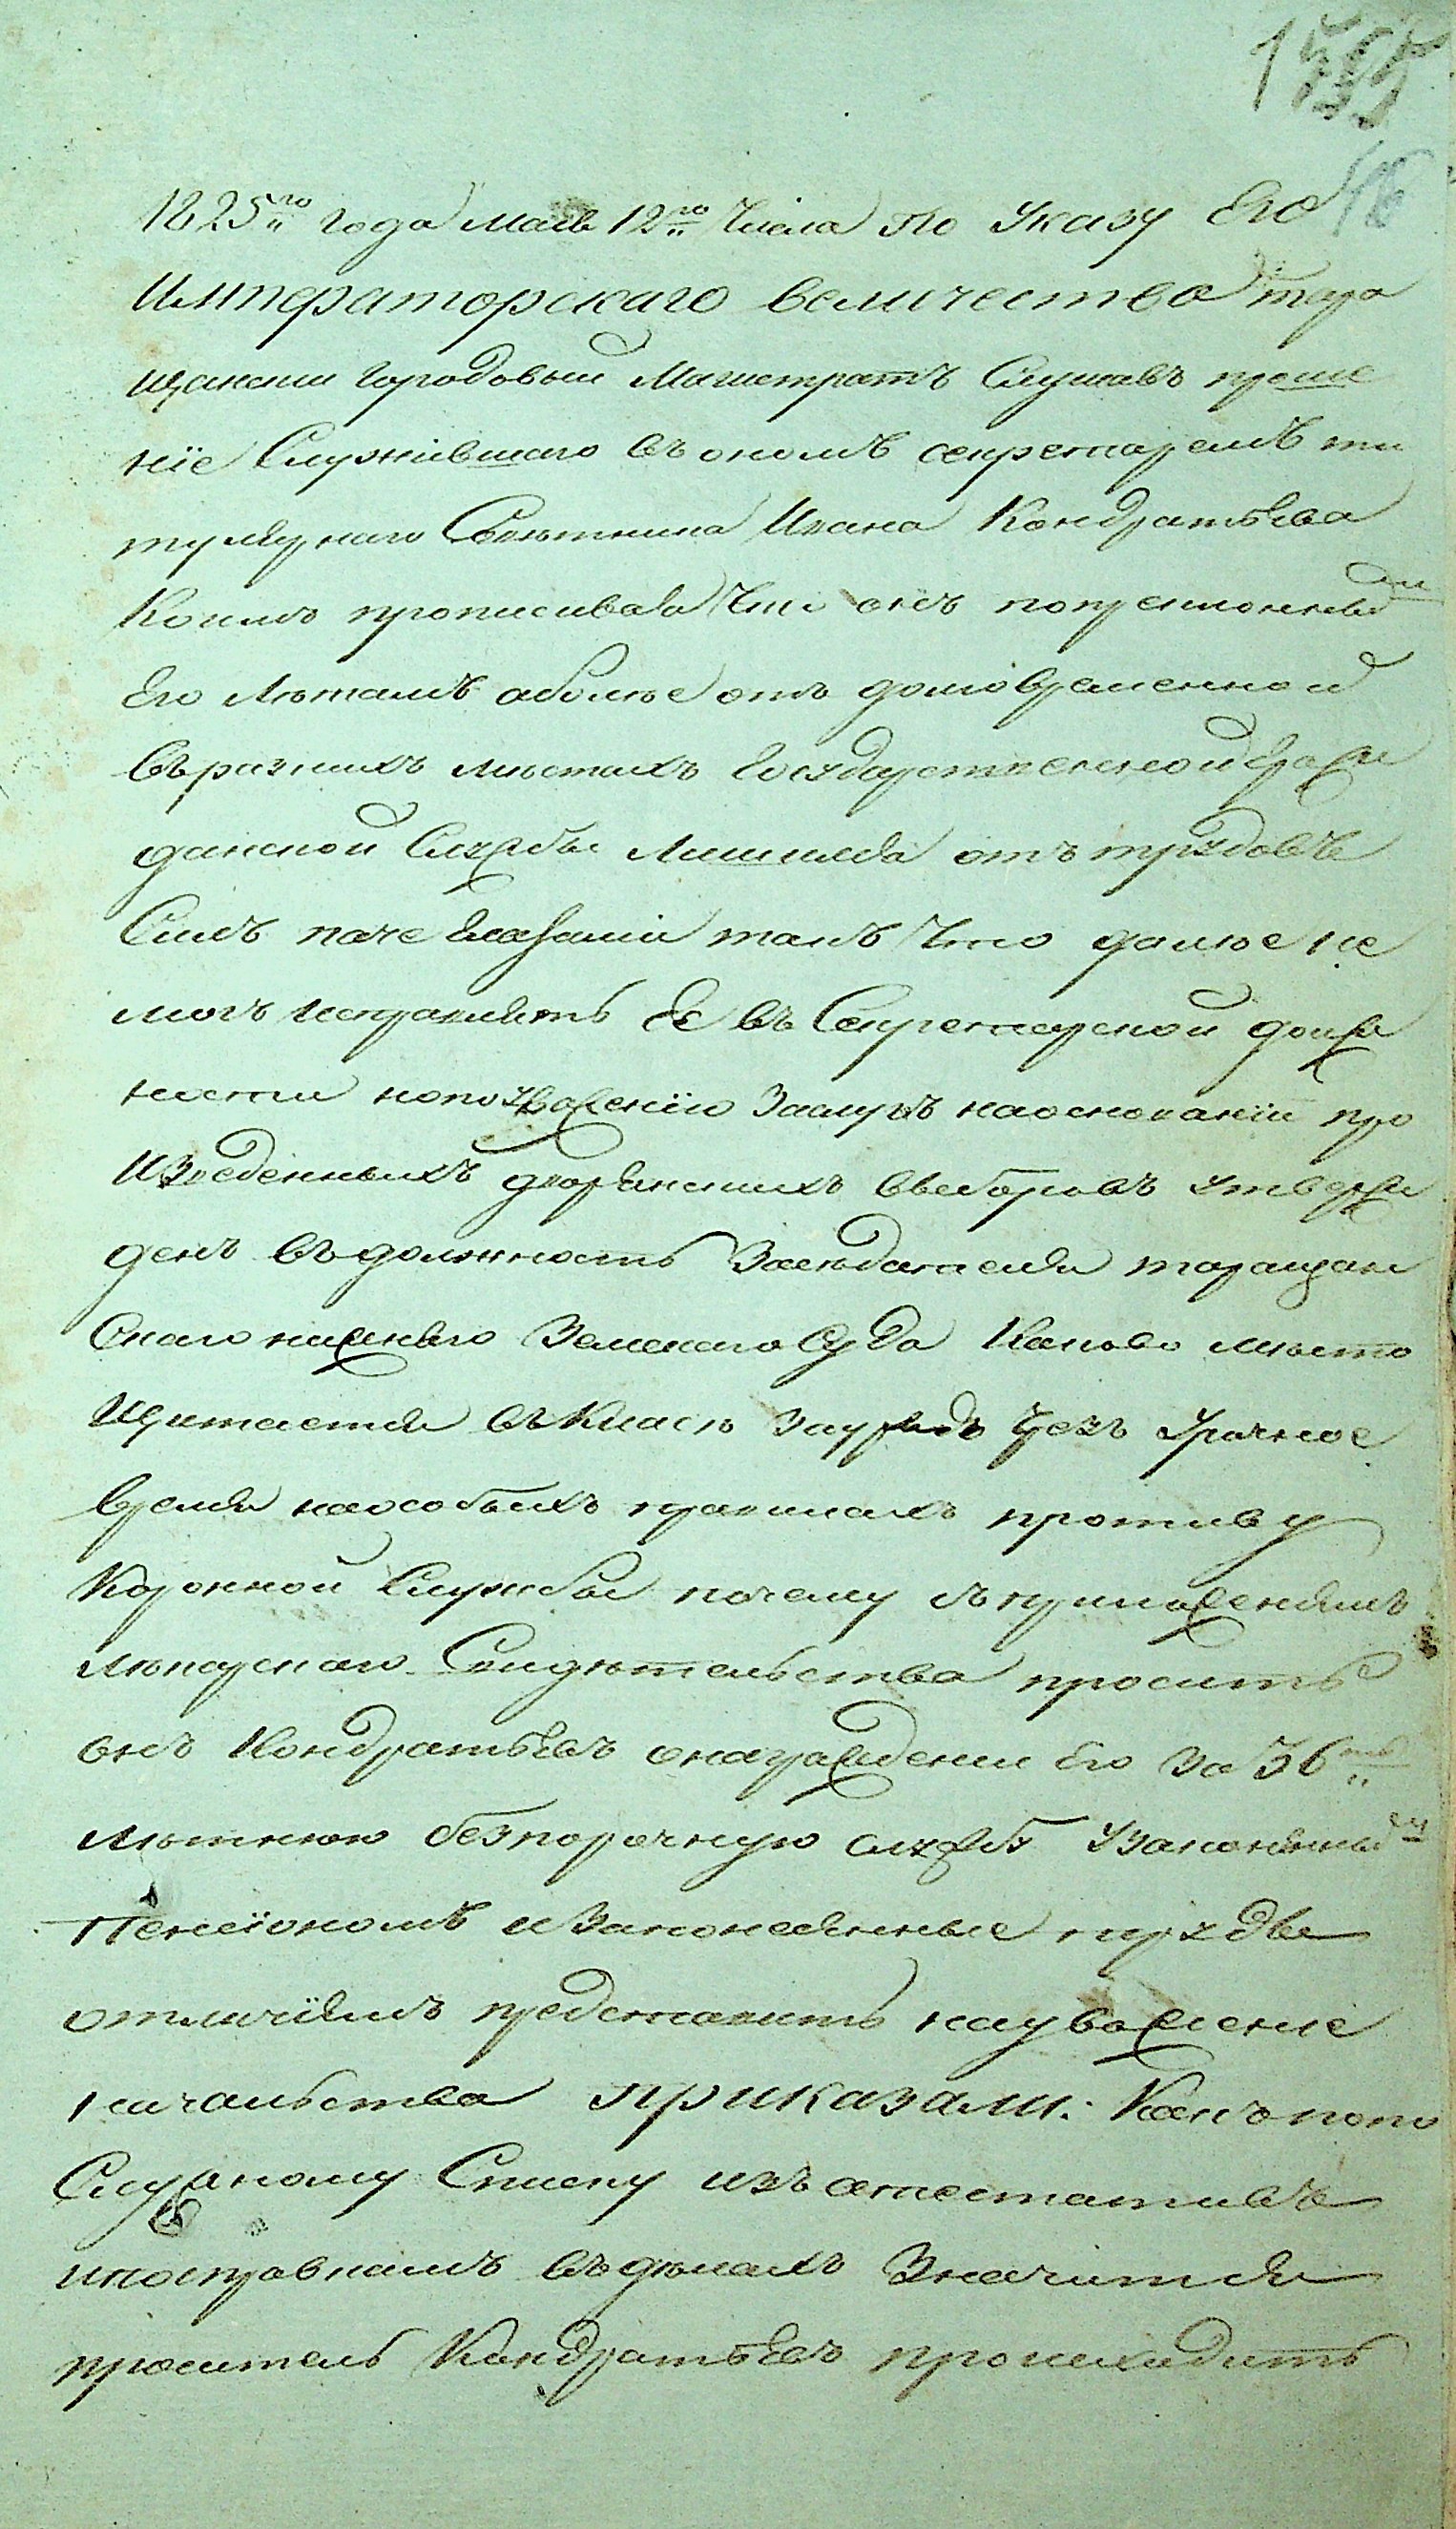 16
1825го года маия 12го числа По Указу Его
Императорскаго величества тара
щански городовый Магистратъ Слушавъ проше
ніе Служившаго въ ономъ секретаремъ ти
тулярнаго Совѣтника Ивана Кондратьева
Коимъ прописывая что онъ попреклоннымъ
Его лѣтамъ аболѣе отъ долговременной
въразныхъ мѣстахъ Государственной граж
данской Службы лишился отъ трудовъ
Силъ паче глазами такъ что далѣе не
могъ исправлять Ее въ Секретарской долж
ности ноповажению Заслугъ наоснованіи про
изведенныхъ дворянскихъ выборовъ утверж
денъ въдолжность Засѣдателя таращан
Скаго нижняго Земскаго Суда Каково мѣсто
Щитается въкласѣ Заурядъ чрезъ Урочное
время наособыхъ правилахъ противу
Коронной Службы почему съприложеніемъ
лѣкарскаго Свидѣтельства проситъ
онъ Кондратьевъ онагражденіи Его За 36ть
лѣтнюю безпорочную службу Узаконеннымъ
Пенсіономъ изапонесенные труды
отличіемъ представить науважение
начальства приказали: Какъ попо
Служному Списку изъ атестатовъ
ипосправкамъ въдѣлахъ Значится
проситель Кондратьевъ происходитъ